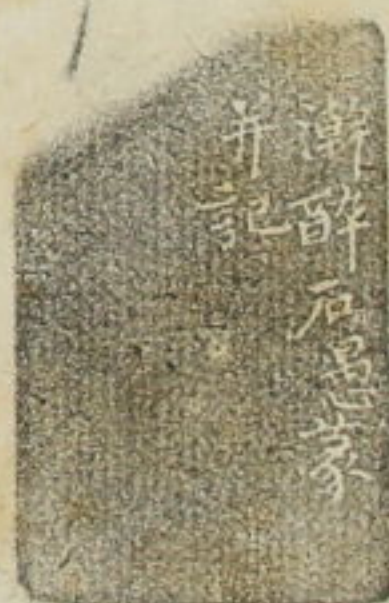 漸醉石愚篆
并記